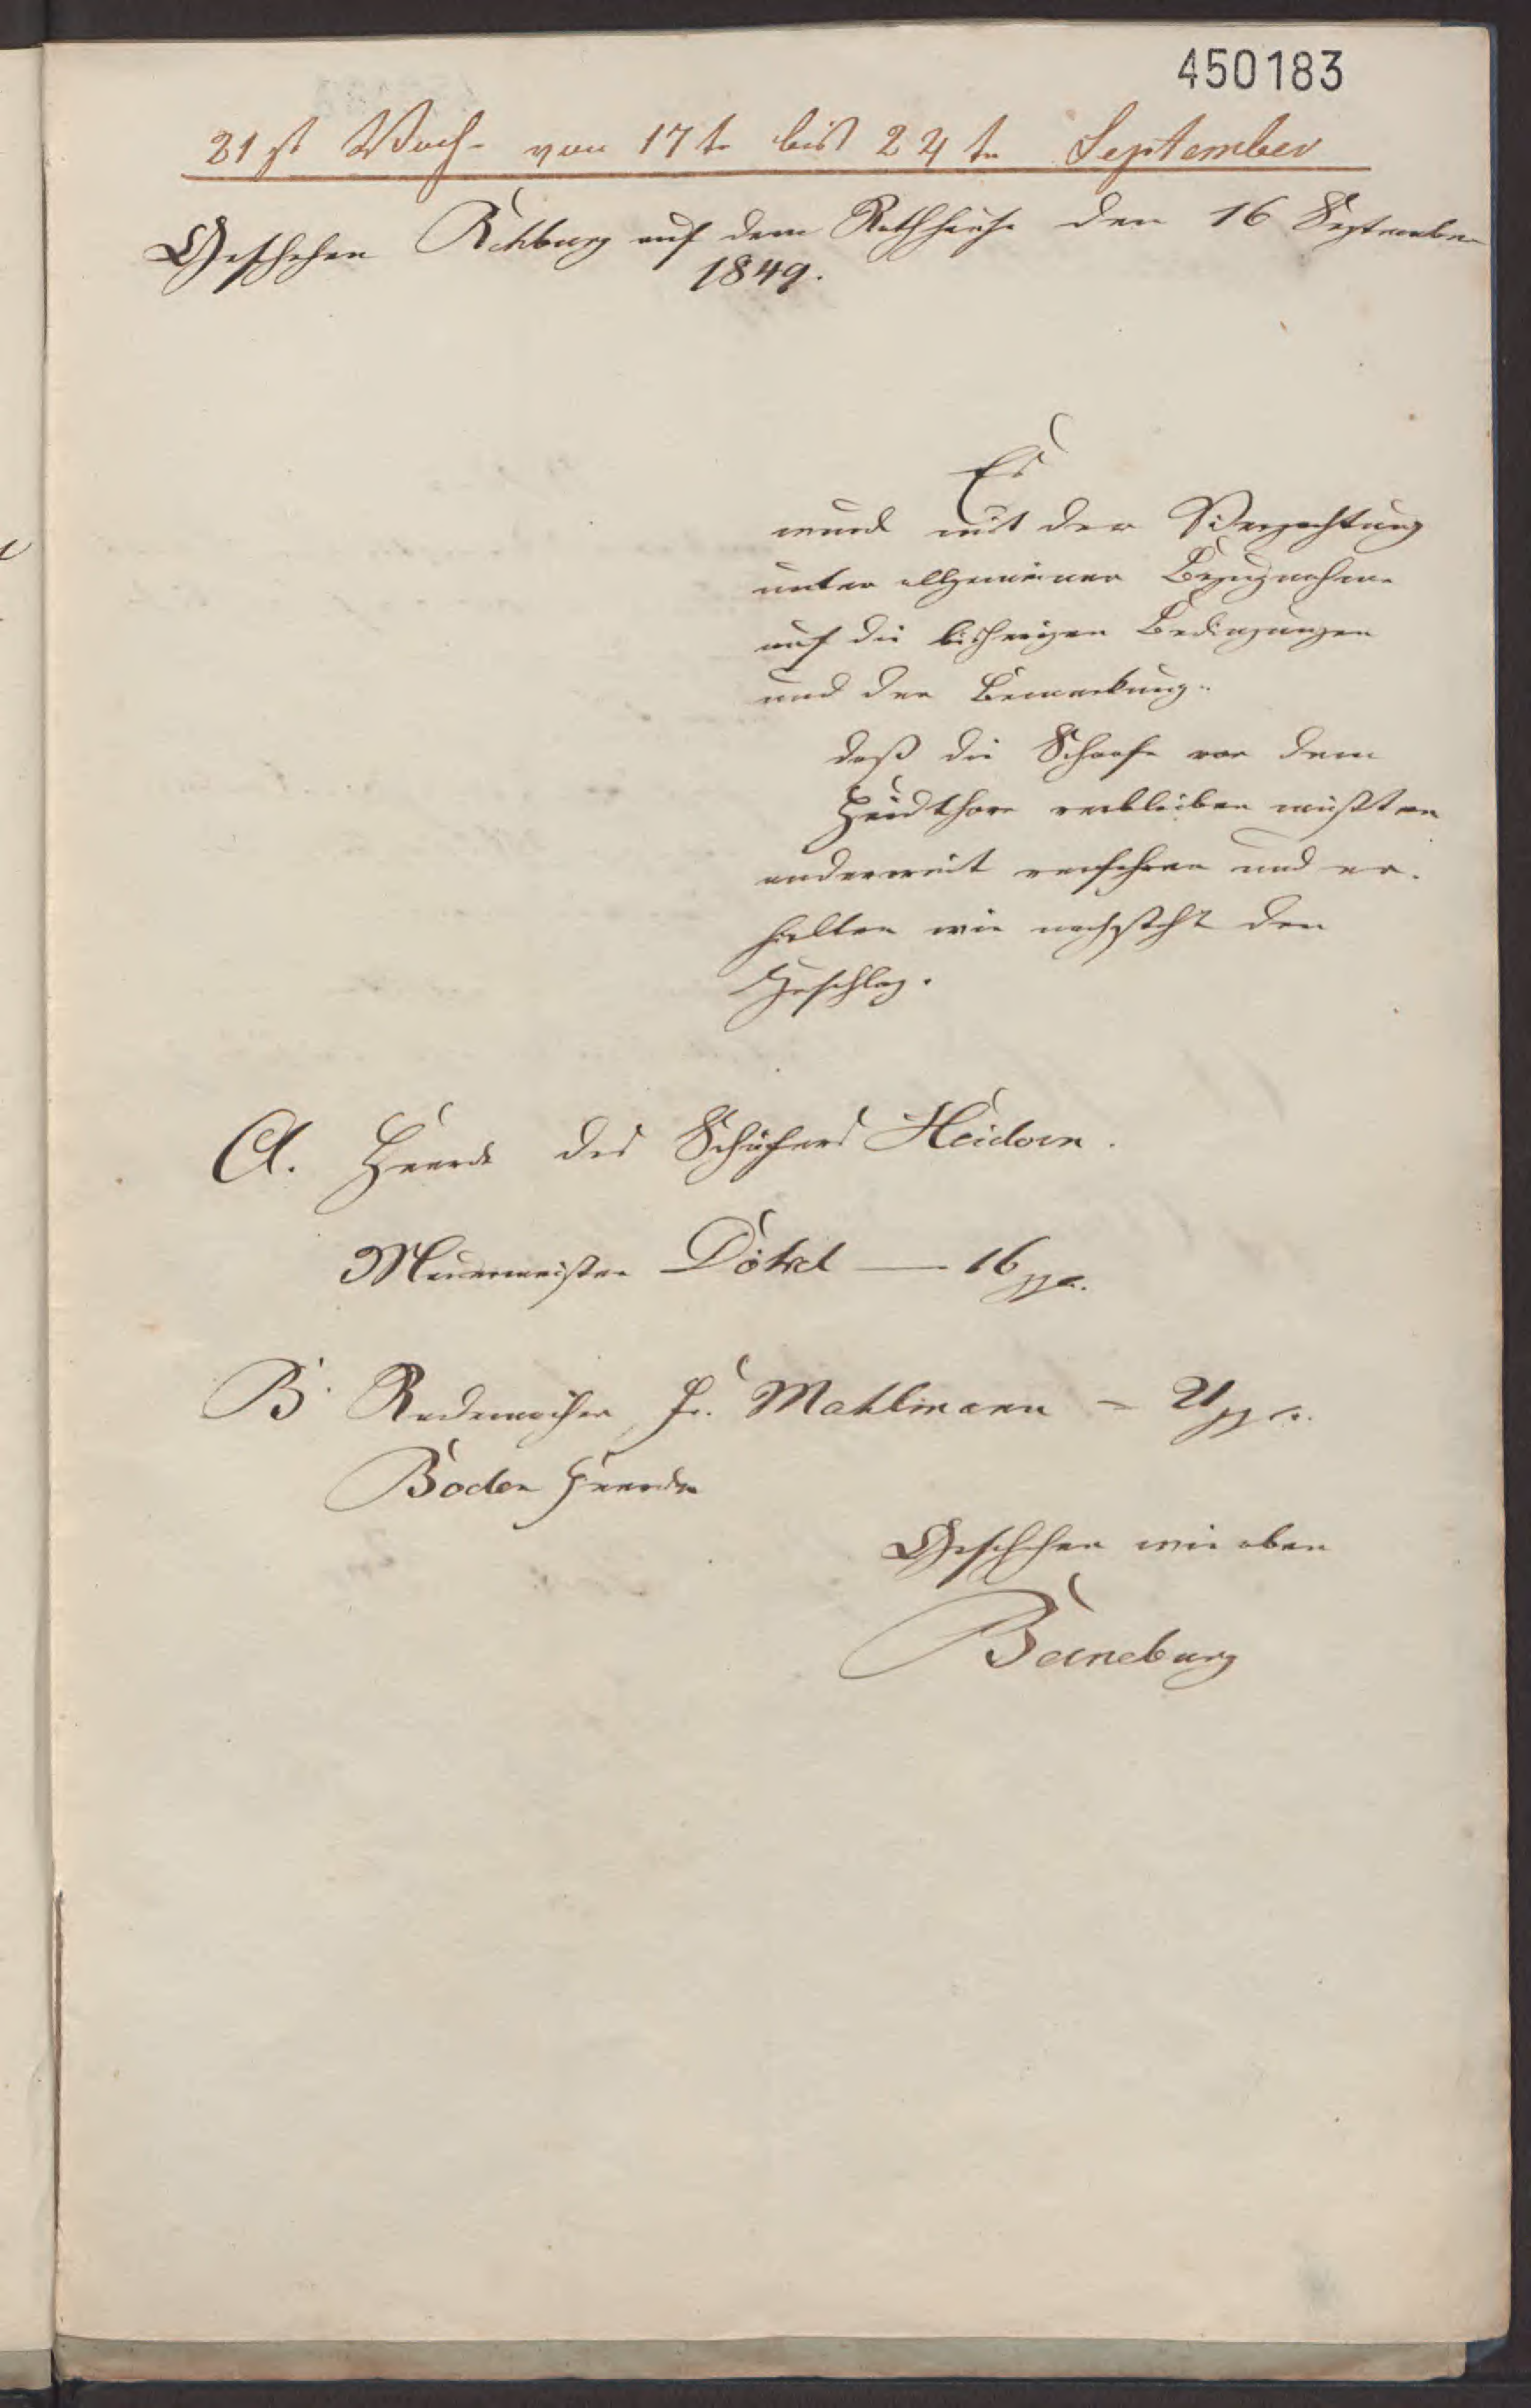 450183
21st Woche von 17te bis 24te September
Geschehen Rehburg auf dem Rathhause den 16 September
1849.
Es
wurde mit der Verpachtung
unter allgemeiner Bezugnahme
auf die bisherigen Bedingungen
und der Bemerkung
daß die Schaafe vor dem
Heidthore verbleiben müßten
anderweit verfahren und er-
hielten wie nachsteht den
Zuschlag.
A. Heerde des Schäfers Heidorn.
Mauermeister Dökel — 16 ggr.
B. Rademacher Fr. Mahlmann — 21 ggr.
Boden Heerde
Geschehen wie oben
Barneburg